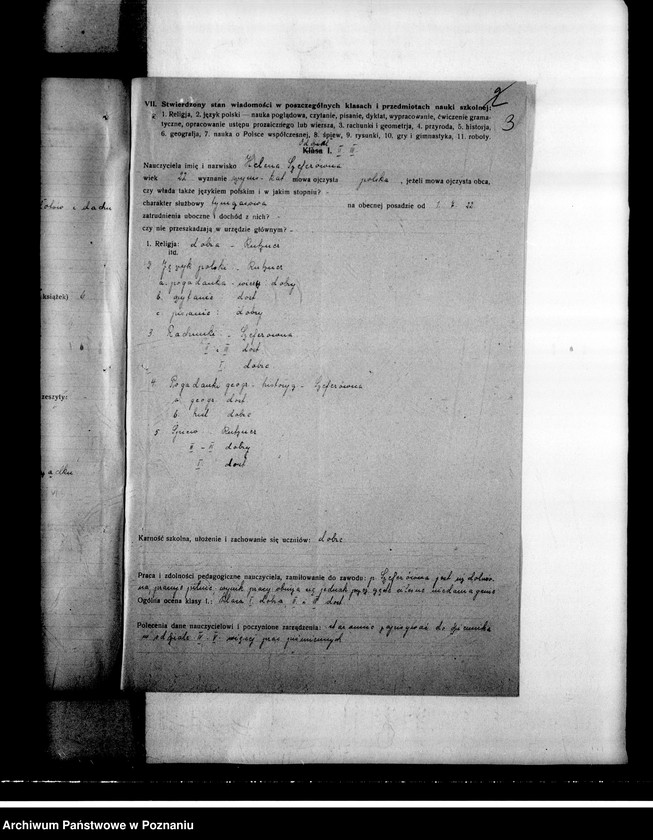 2
3
VII. Stwierdzony stan wiadomości w poszczególnych klasach i przedmiotach nauki szkolnej:
1. Religja, 2. język polski — nauka poglądowa, czytanie, pisanie, dyktat, wypracowanie, ćwiczenie grama-
tyczne, opracowanie ustępu prozaicznego lub wiersza, 3. rachunki i geometrja, 4. przyroda, 5. historja,
6. geografja, 7. nauka o Polsce współczesnej, 8. śpiew, 9. rysunki, 10. gry i gimnastyka, 11. roboty.
Klasa I. II III
Nauczyciela imię i nazwisko Helena Szeferówna
wiek 22 wyznanie rzym. kat. mowa ojczysta polska, jeżeli mowa ojczysta obca,
czy włada także językiem polskim i w jakim stopniu? -
charakter służbowy tymczasowa na obecnej posadzie od 22
zatrudnienia uboczne i dochód z nich? -
czy nie przeszkadzają w urzędzie głównym? -
1. Religja: dobra -
itd.
2 Język polski -
a. pogadanka - dobry
b. czytanie dost
c. pisanie: dobry
3. Rachunki - Szeferówna
II i III dost
I dobre
4. Pogadanki geogr - history - Szeferówna
a. geogr. dost
b. hist dobre
5. Śpiew
II - III dobry
I dost
Karność szkolna, ułożenie i zachowanie się uczniów: dobre
Praca i zdolności pedagogiczne nauczyciela, zamiłowanie do zawodu: p. Szeferówna jest
pracuje pilnie, wynik pracy jednak
Ogólna ocena klasy I.: Klasa I dobra II i III dost
Polecenia dane nauczycielowi i poczynione zarządzenia: starannie do dziennika
w oddziale II więcej prac piśmiennych
dachu
książek) 6
zeszyty:
Archiwum Państwowe w Poznaniu